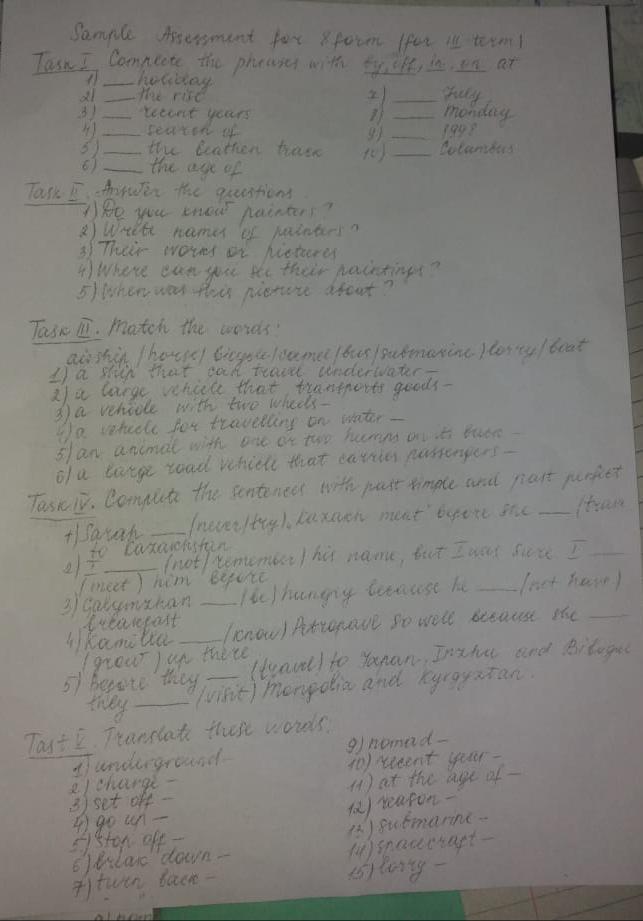 Sample Assessment for 8 form (for III term)
Task I Complete the phrases with by, off, in, on at
1) ___ holiday
2) ___ the rise
3) ___ recent years
4) ___ search of
5) ___ the beathen track
6) ___ the age of
7) ___ July
8) ___ Monday
9) ___ 1998
10) ___ Columbus
Task II. Answer the questions
1) Do you know painters?
2) Write names of painters?
3) Their works or pictures
4) Where can you see their paintings?
5) When was this picture about?
Task III. Match the words:
airship / horse / bicycle / camel / bus / submarine / lorry / boat
1) a ship that can travel underwater –
2) a large vehicle that transports goods –
3) a vehicle with two wheels –
4) a vehicle for travelling on water –
5) an animal with one or two humps on its back –
6) a large road vehicle that carries passengers –
Task IV. Complete the sentences with past simple and past perfect
1) Sarah ___ (never/try) Kazakh meat before she ___ (travel
to Kazakhstan
2) I ___ (not/remember) his name, but I was sure I ___
(meet) him before
3) Galymzhan ___ (be) hungry because he ___ (not have)
breakfast
4) Kamilla ___ (know) Petropavl so well because she ___
(grow) up there
5) Before they ___ (travel) to Japan, Inzhu and Bibigul
they ___ (visit) Mongolia and Kyrgyztan.
Tast V. Translate these words.
1) underground –
2) charge –
3) set off –
4) go up –
5) stop off –
6) break down –
7) turn back –
9) nomad –
10) recent year –
11) at the age of –
12) reason –
13) submarine –
14) spacecraft –
15) lorry –